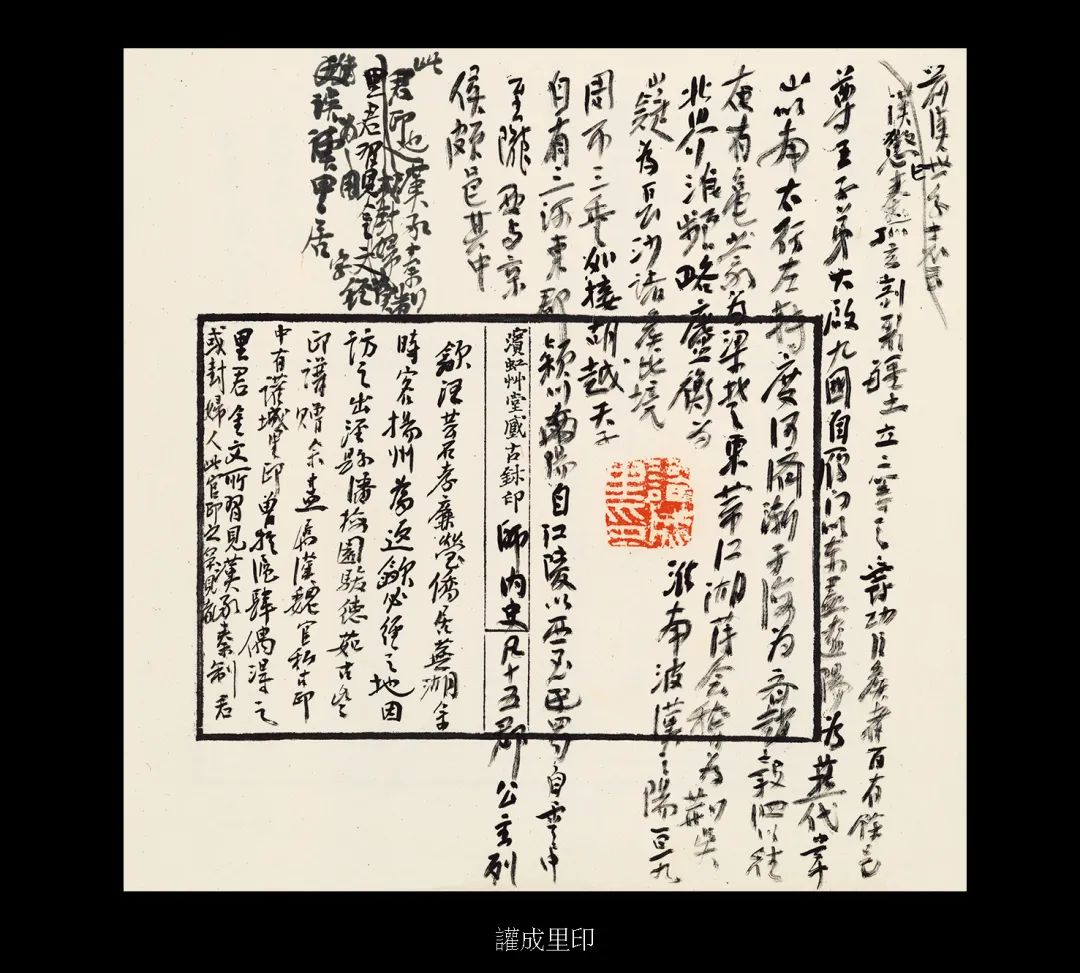 漢懲秦孤立剖裂疆土立二等之爵功臣侯者百有餘邑
尊王子弟大啟九國自雁門以東盡遼陽為燕代常
山以南太行左轉度河濟漸于海為齊趙穀泗以往
奄有龜蒙為梁楚東帶江湖薄會稽為荊吳
北界淮瀕略廬衡為
淮南波漢之陽亘九
嶷為長沙諸侯比境
周帀三垂外接胡越天子
自有三河東郡潁川南陽自江陵以西至巴蜀自雲中
至隴西與京
師內史凡十五郡公主列
侯頗邑其中
此
君印也漢承秦制
里君習見金文
讙成里印
濱虹艸堂藏古鉥印
歙汪芸石孝廉瑩僑居蕪湖余
時客揚州為返歙必徑之地因
訪之出涇縣潘捨園駿德茹古
印譜贈余盡屬漢魏官私古印
中有讙城里印曾於滬肆偶得之
里君金文所習見漢承秦制君
或封婦人此官印之
讙成里印